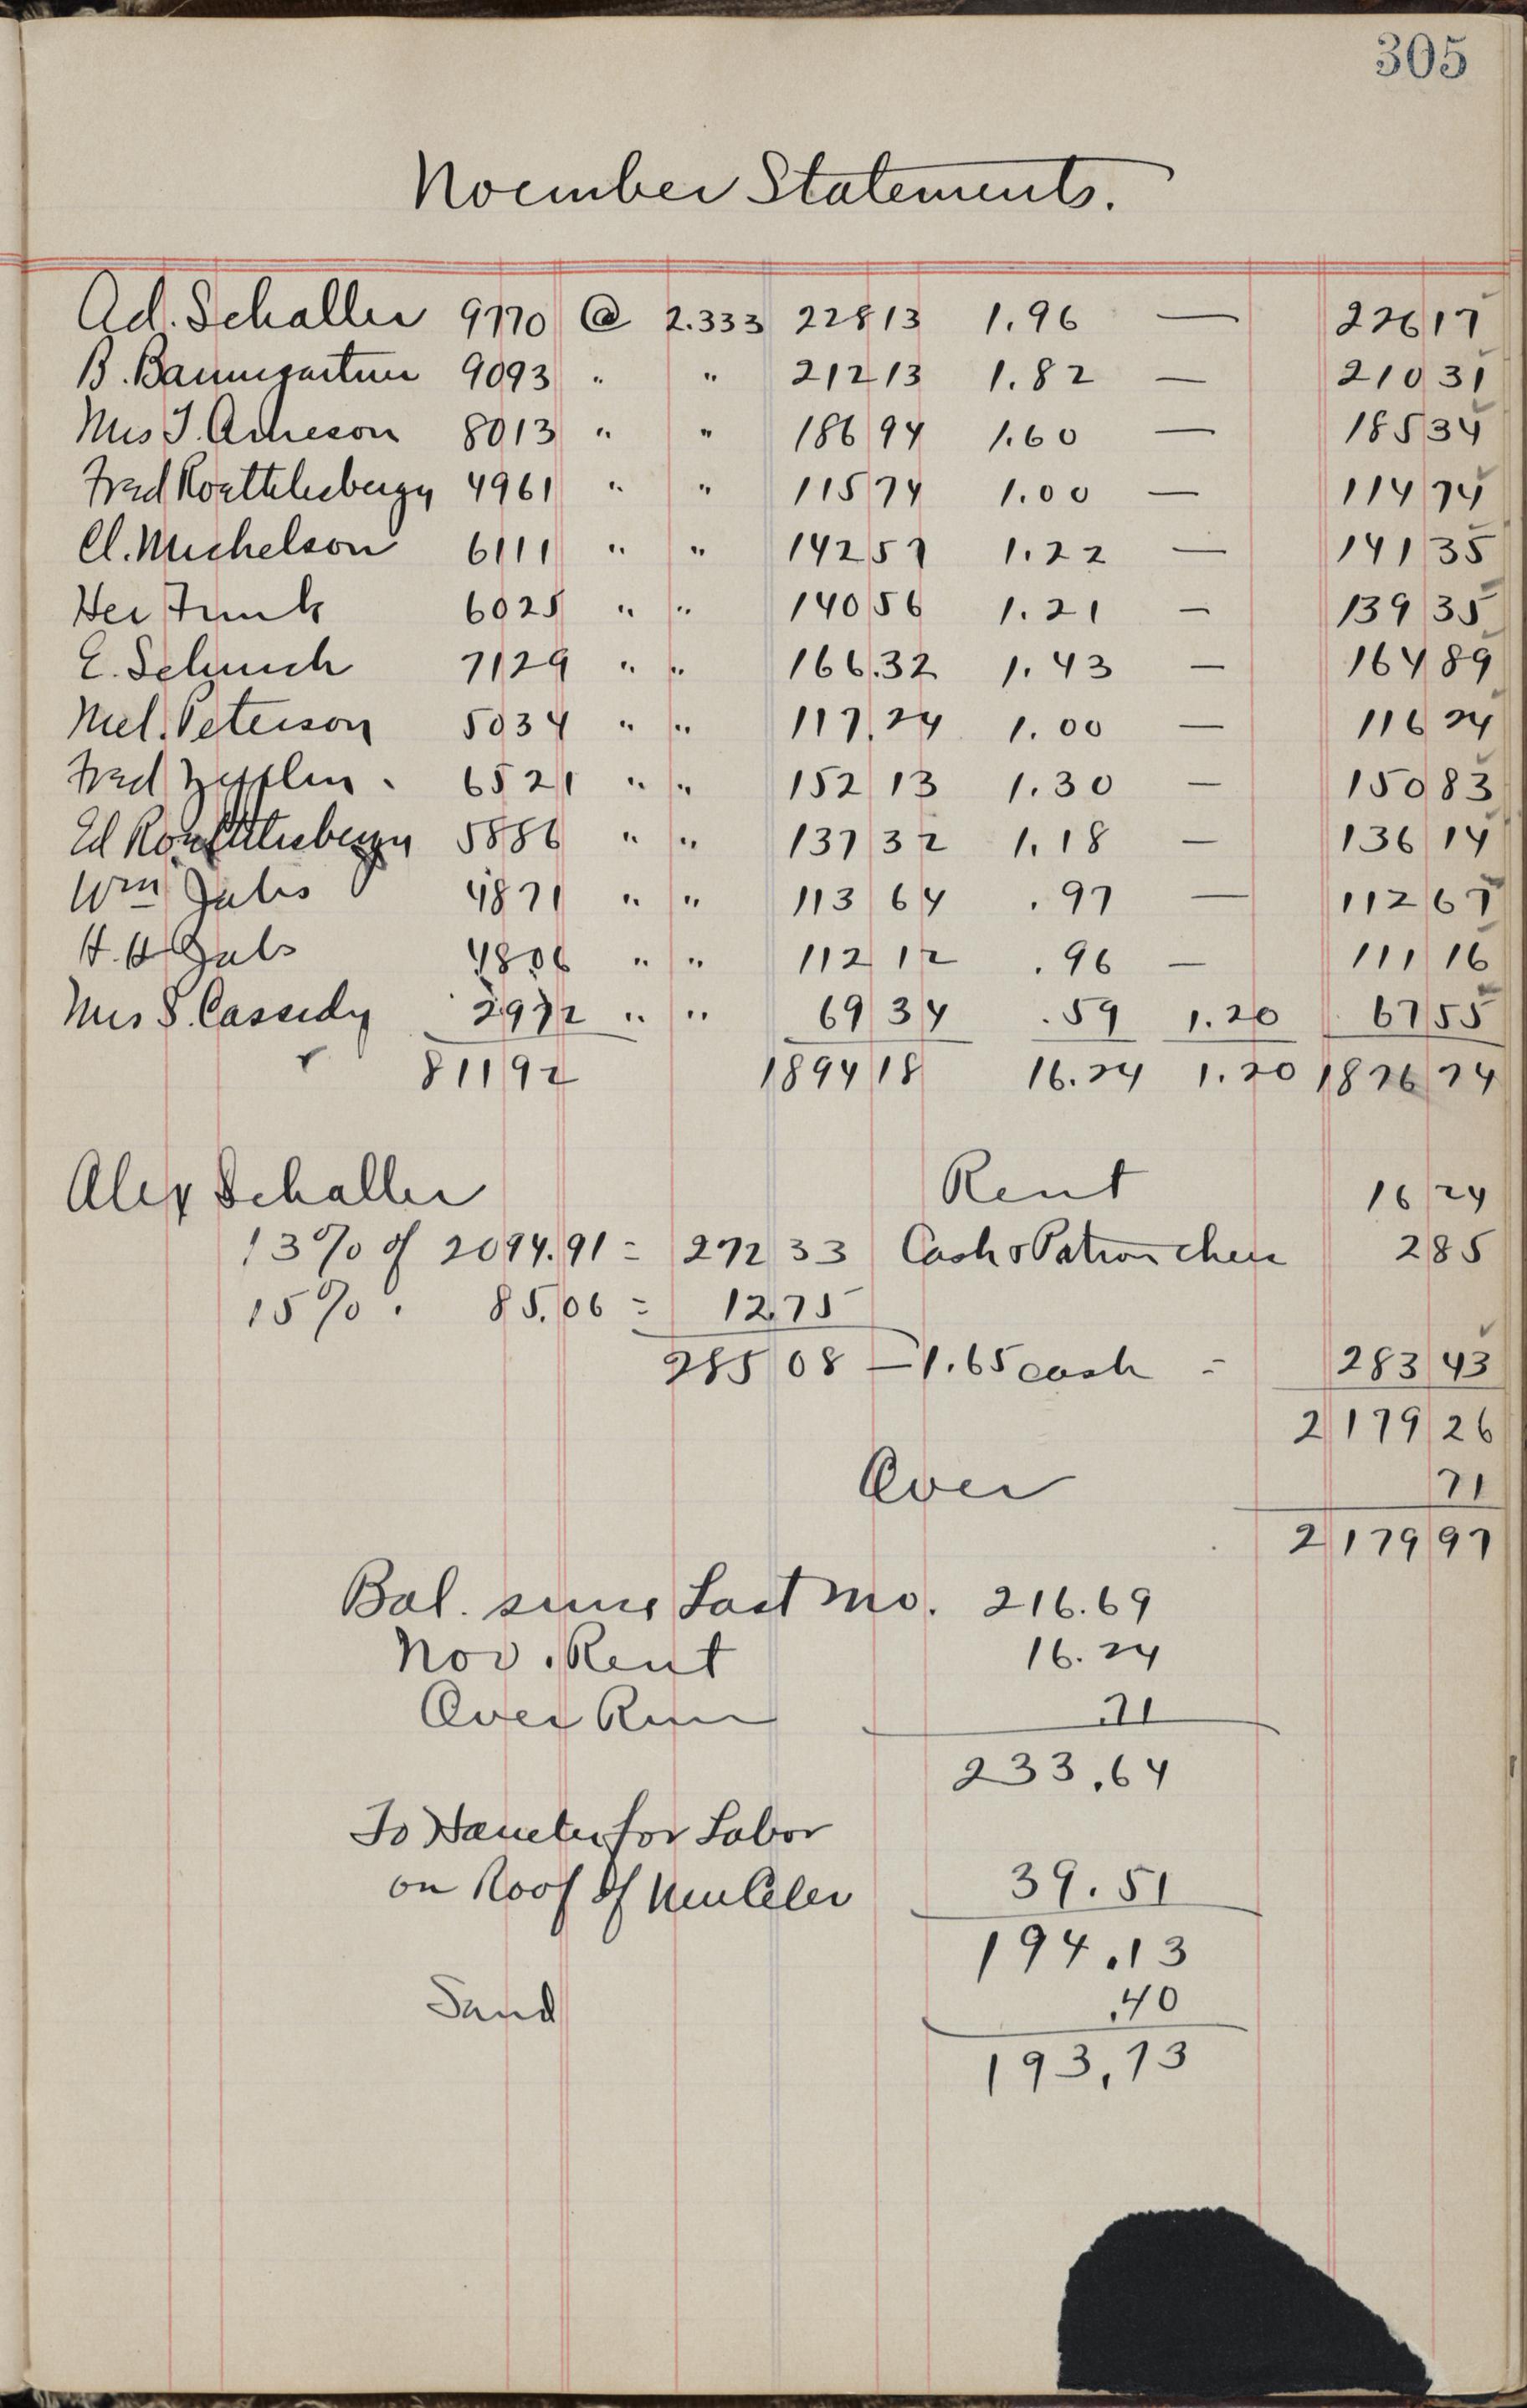 305
Noember Statements.
Ad. Schaller 9770 @ 2.333 228 13 1.96 — 226 17
B. Baumgartner 9093 " " 212 13 1.82 — 210 31
Mrs T. Arneson 8013 " " 186 94 1.60 — 185 34
Fred Roethlisberger 4961 " " 115 74 1.00 — 114 74
Cl. Michelson 6111 " " 142 57 1.22 — 141 35
Her Funk 6025 " " 140 56 1.21 — 139 35
E. Schuch 7129 " " 166.32 1.43 — 164 89
Mel. Peterson 5034 " " 117.24 1.00 — 116 24
Fred 6521 " " 152 13 1.30 — 150 83
Ed Roethlisberger 5886 " " 137 32 1.18 — 136 14
Wm Jabs 4871 " " 113 64 .97 — 112 67
H. H Jabs 4806 " " 112 12 .96 — 111 16
Mrs S. Cassidy 2972 " " 69 34 .59 1.20 67 55
81192 1894 18 16.24 1.20 1876 74
Alex Schaller Rent 16 24
13% of 2094.91 = 272 33 Cash & Patron chese 2 85
15% " 85.06 = 12.75
285 08 — 1.65 cash = 283 43
2179 26
Over 71
2179 97
Bal. since Last mo. 216.69
Nov. Rent 16.24
Over Run .71
233.64
To for Labor
on Roof of 39.51
194.13
Sand .40
193.73